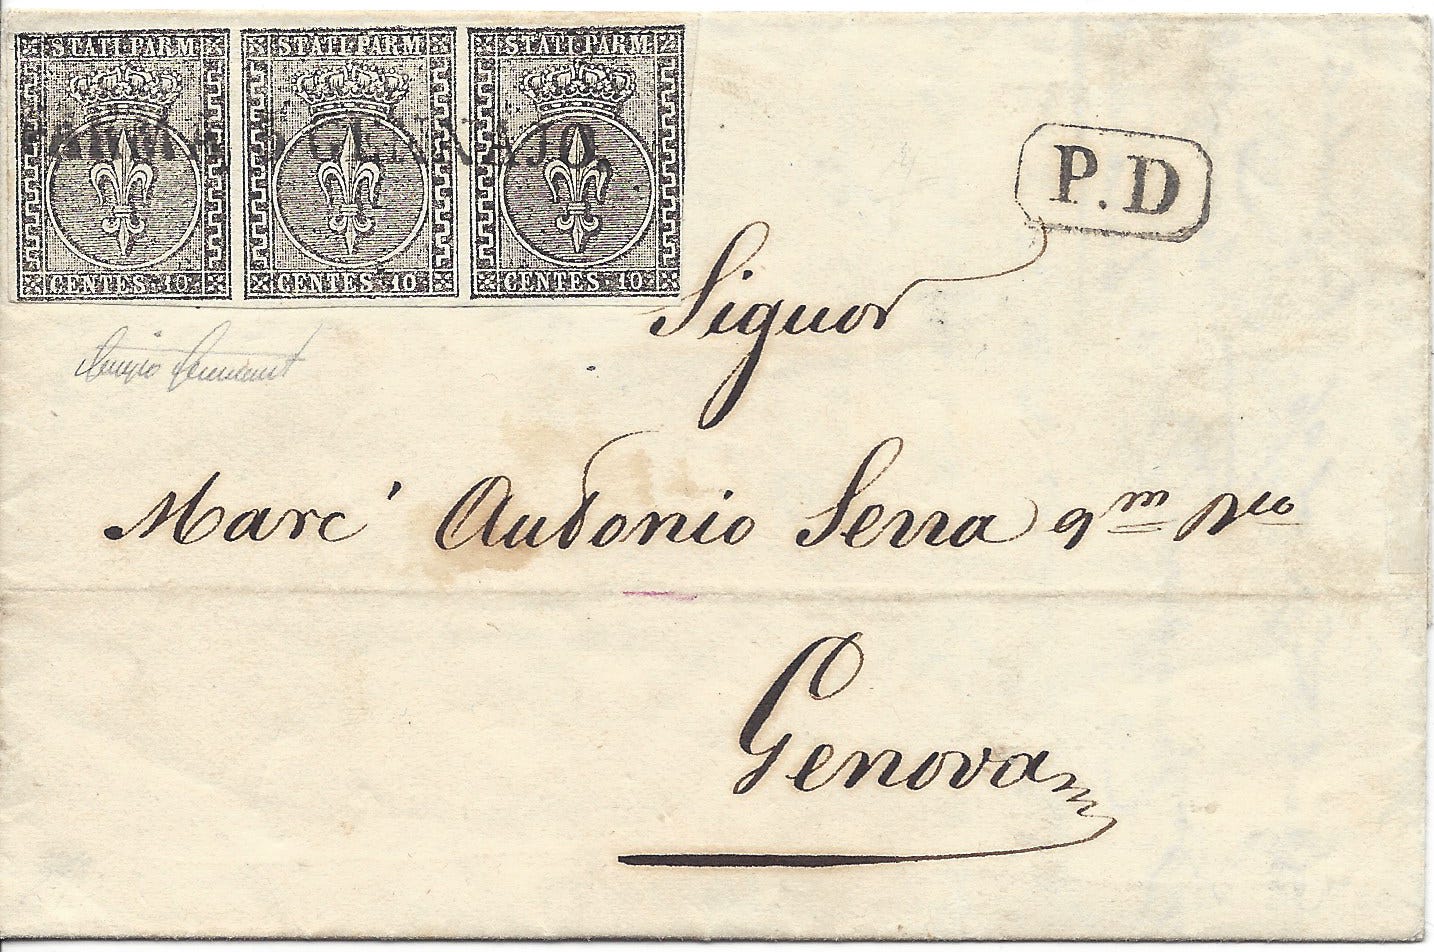 STATI PARM. STATI PARM. STATI PARM.
PARMA GENNAJO
CENTES. 10. CENTES. 10. CENTES. 10.
P.D
Signor
Marc' Antonio Serra qm
Genova